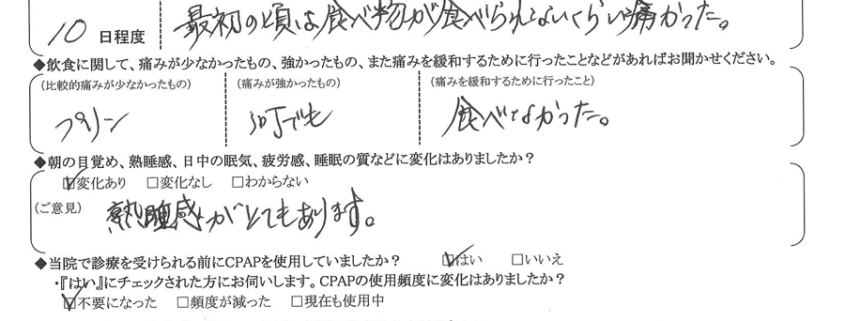 10 日程度 最初の頃は食べ物が食べられないくらい痛かった。
◆飲食に関して、痛みが少なかったもの、強かったもの、また痛みを緩和するために行ったことなどがあればお聞かせください。
(比較的痛みが少なかったもの) (痛みが強かったもの) (痛みを緩和するために行ったこと)
プリン 何でも 食べなかった。
◆朝の目覚め、熟睡感、日中の眠気、疲労感、睡眠の質などに変化はありましたか?
☑変化あり □変化なし □わからない
(ご意見) 熟睡感がとてもあります。
◆当院で診療を受けられる前にCPAPを使用していましたか? ☑はい □いいえ
・『はい』にチェックされた方にお伺いします。CPAPの使用頻度に変化はありましたか?
☑不要になった □頻度が減った □現在も使用中